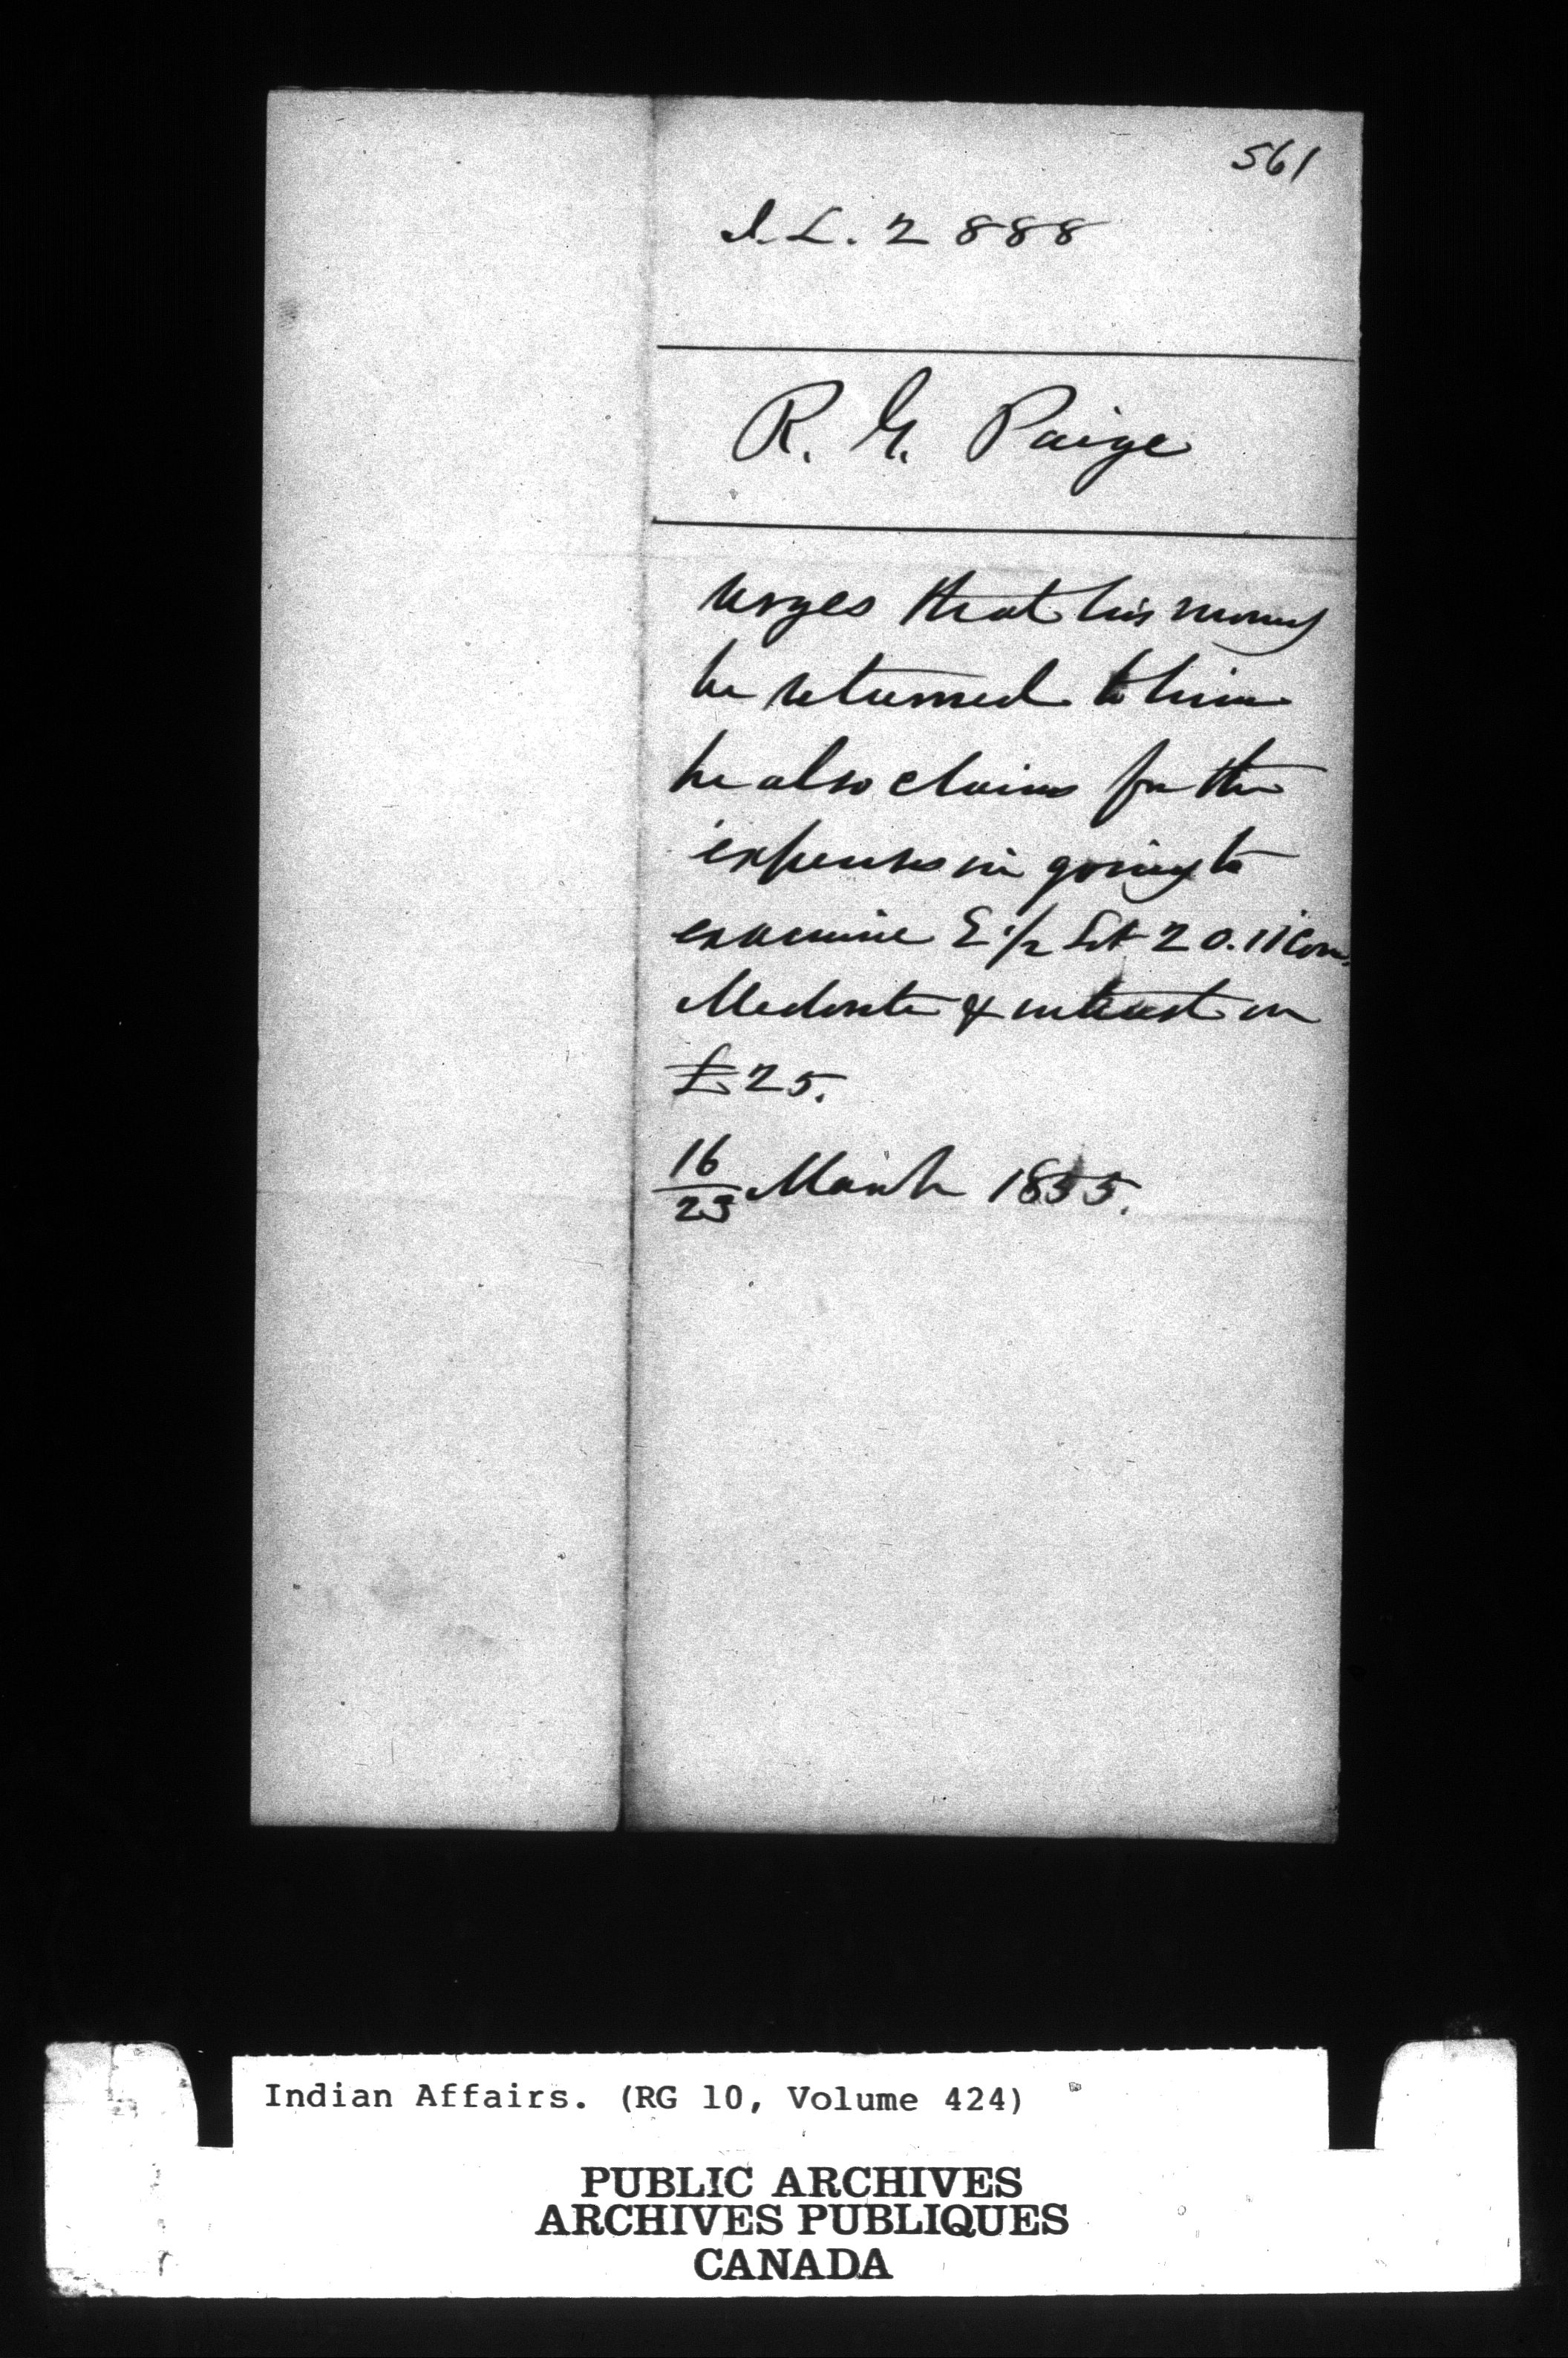 561
I.L. 2888
R. G. Paige
urges that his money
be returned to him
he also claims for the
expenses in going to
examine E 1/2 Lot 20. 11 Con.
Medonte & interest on
£25.
16/23 March 1855.
Indian Affairs. (RG 10, Volume 424)
PUBLIC ARCHIVES
ARCHIVES PUBLIQUES
CANADA